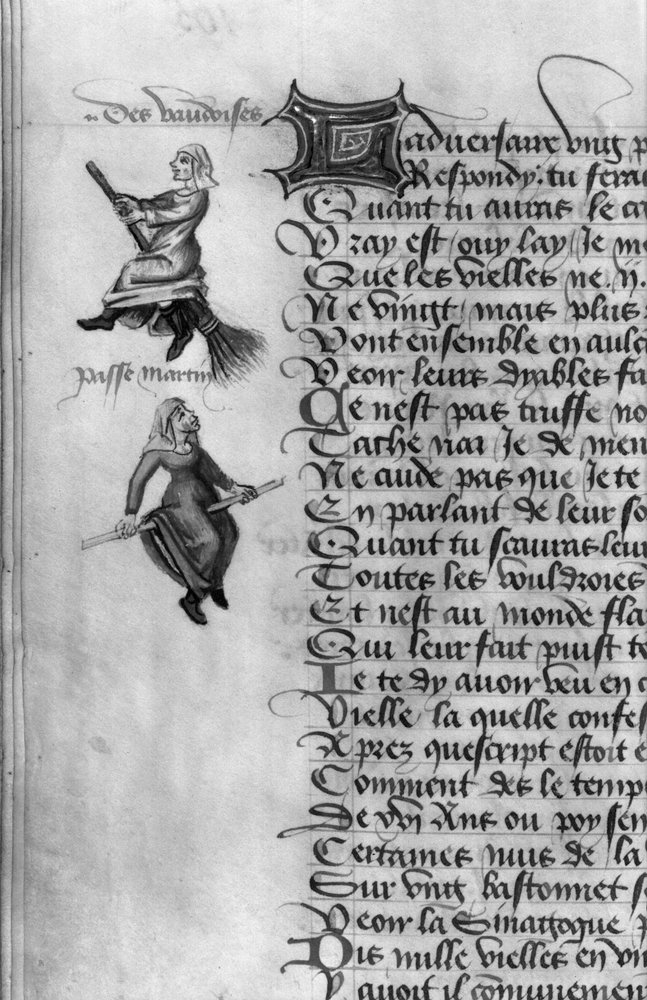 Des vaudoises
passe martin
L adversaire vng p
Respondy: tu seras
Quant tu auras le ca
Vray est ouy lay Je me
Que les vielles ne .ij.
Ne vingt mais plus
Vont ensemble en aulc
Veoir leurs dyables fa
Ce nest pas truffe no
Tache nar Je de men
Ne cuide pas que Je te
En parlant de leur so
Quant tu scauras leur
Toutes les vouldroies
Et nest au monde fla
Qui leur fait puist te
Je te dy auoir veu en c
Vielle la quelle confes
Aprez quescript estoit e
Comment des le temps
De xvj Ans ou poy sen
Certaines nuis de la
Sur vng bastonnet s
Veoir la Sinagogue p
Dis mille vielles en vn
Y auoit il communemen